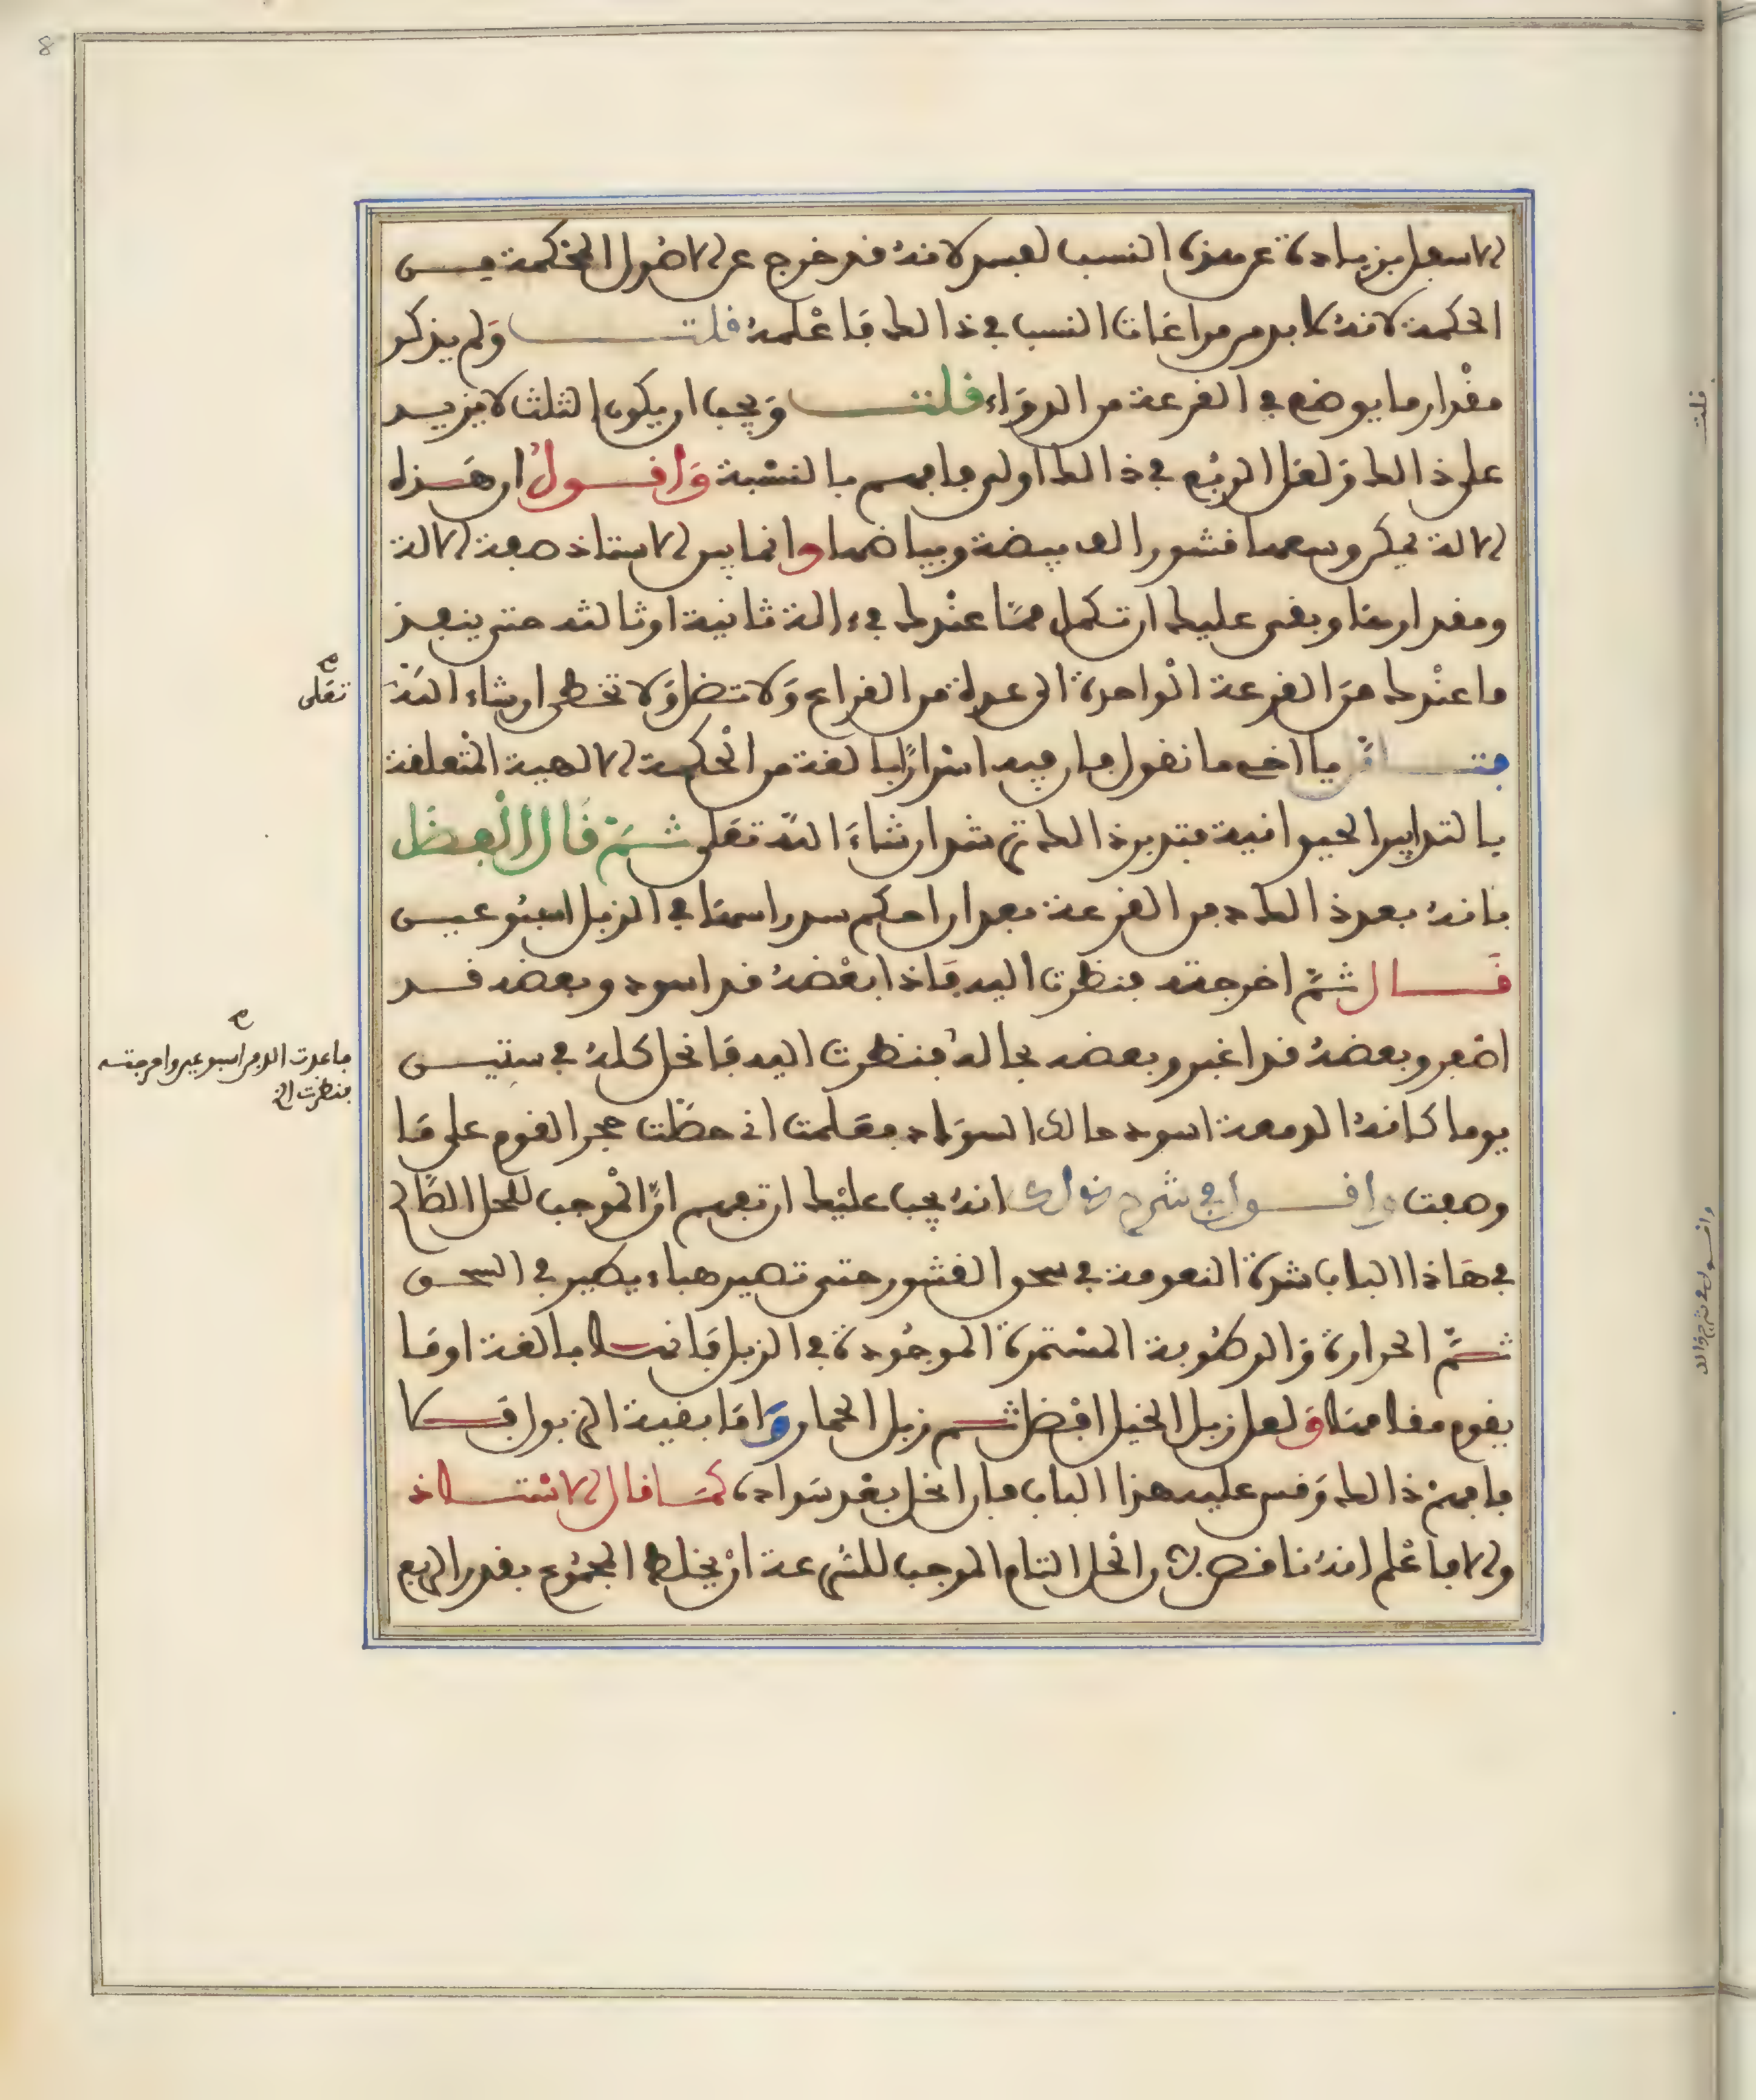 الاسعل بزيادة عن هذه النسب لعبد لانه قد خرج عن الاصول المحكمة في
الحكمة لانه لا بد من مراعات النسب في ذالك فاعلمه قلت ولم يذكر
مقدار ما يوضع في القرعة من الدواء قلت ويجب ان يكون الثلث لا يزيد
على ذالك ولعل الربع في ذالك اولى فافهم بالنسبة واقول ان هذه
الالة يمكن وسعها قشور البيضة وبياضها وانما بين الاستاذ صفة الالة
ومقدارها وبقى عليك ان تكمل مما عندك في ءالة ثانية او ثالثه حتى ينفذ
ما عندك من القرعة الواحدة الى عدة من القراع ولا تضل ولا تخطى ان شاء الله
فتامل يا اخى ما نقول فان فيه اسرارا بالغة من الحكمة الالهية المتعلقة
بالتدابير الحيوانية فتدبر ذالك ترشد ان شاء الله تعلى ثم قال الفضل
بانه بعد ذالك دفن القرعة بعد ان احكم سد راسها في الزبل اسبوعين
قال ثم اخرجته فنظرت اليه فاذا بعضه قد اسود وبعضه قد
اصفر وبعضه قد اغبر وبعضه بحاله فنظرت اليه فانحل كله في ستين
يوما كانه الدمعة اسود حالك السواد فعلمت انى حظت حجر القوم على ما
وصفت واقول في شرح ذالك انه يجب عليك ان تفهم ان الموجب للحل الصالح
في هاذا الباب شدة النعومة في سحق القشور حتى تصير هباء يطير في السحق
ثم الحرارة والرطوبة المستمرة الموجودة في الزبل فانها بالغة او ما
يقوم مقامها ولعل زبل الخيل افضل ثم زبل الحمار واما بقية الزبول فلا
فافهم ذالك وقس عليه هذا الباب فان انحل بعد سواده كما قال الاستاذ
والا فاعلم انه ناقص لان الحل التام الموجب للسرعة ان يخلط المجموع بقدر الربع
تعلى
فاعدت الدفن اسبوعين واخرجته
فنظرت الخ
قلت
واقول في شرح ذالك
8